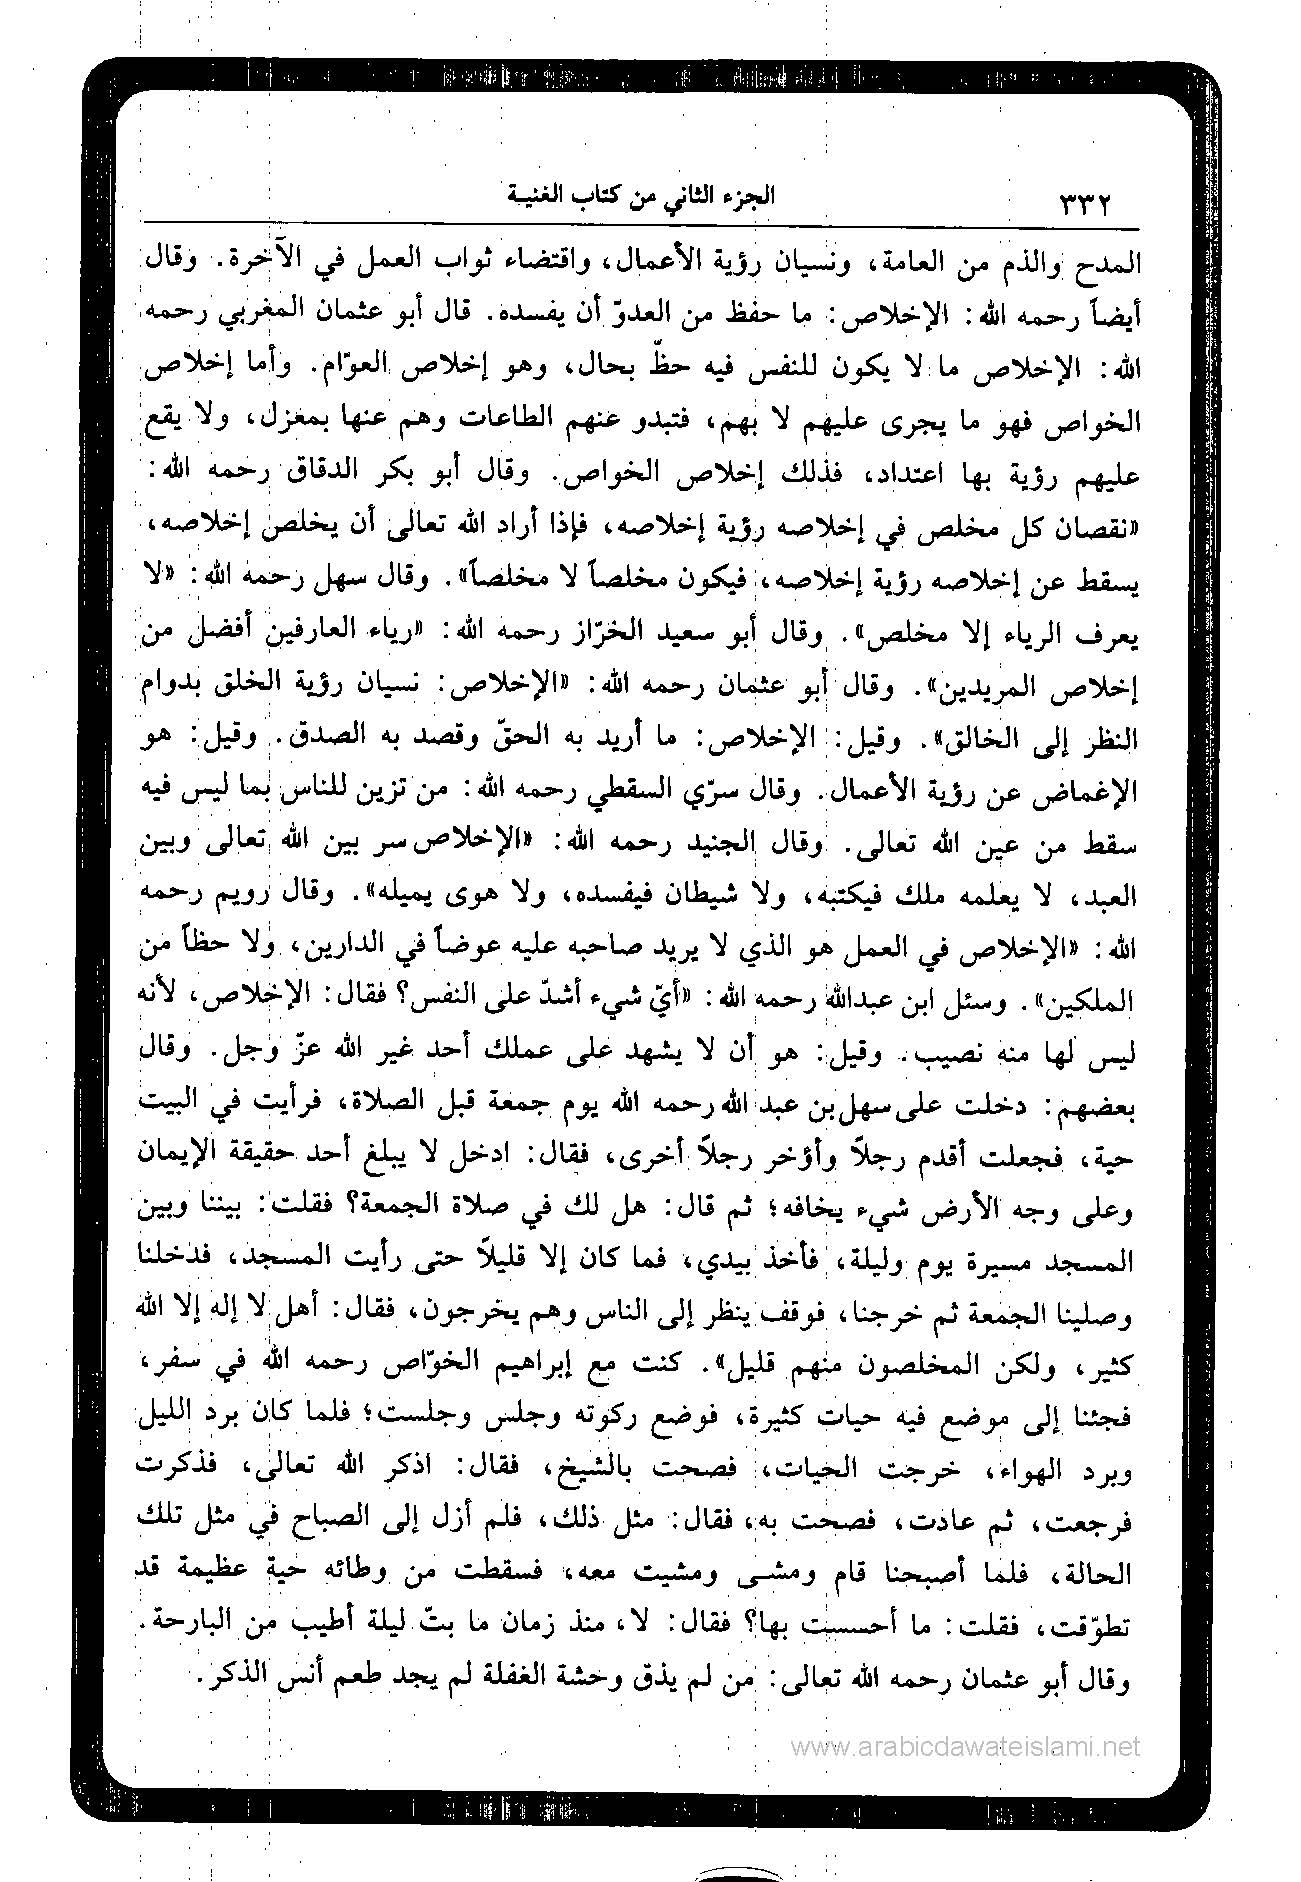 ٣٣٢
الجزء الثاني من كتاب الغنية
المدح والذم من العامة، ونسيان رؤية الأعمال، واقتضاء ثواب العمل في الآخرة. وقال
أيضاً رحمه الله: الإخلاص: ما حفظ من العدوّ أن يفسده. قال أبو عثمان المغربي رحمه
الله: الإخلاص ما لا يكون للنفس فيه حظّ بحال، وهو إخلاص العوّام. وأما إخلاص
الخواص فهو ما يجرى عليهم لا بهم، فتبدو عنهم الطاعات وهم عنها بمعزل، ولا يقع
عليهم رؤية بها اعتداد، فذلك إخلاص الخواص. وقال أبو بكر الدقاق رحمه الله:
«نقصان كل مخلص في إخلاصه رؤية إخلاصه، فإذا أراد الله تعالى أن يخلص إخلاصه،
يسقط عن إخلاصه رؤية إخلاصه، فيكون مخلصاً لا مخلصاً». وقال سهل رحمه الله: «لا
يعرف الرياء إلا مخلص». وقال أبو سعيد الخرّاز رحمه الله: «رياء العارفين أفضل من
إخلاص المريدين». وقال أبو عثمان رحمه الله: «الإخلاص: نسيان رؤية الخلق بدوام
النظر إلى الخالق». وقيل: الإخلاص: ما أريد به الحقّ وقصد به الصدق. وقيل: هو
الإغماض عن رؤية الأعمال. وقال سرّي السقطي رحمه الله: من تزين للناس بما ليس فيه
سقط من عين الله تعالى. وقال الجنيد رحمه الله: «الإخلاص سر بين الله تعالى وبين
العبد، لا يعلمه ملك فيكتبه، ولا شيطان فيفسده، ولا هوى يميله». وقال رويم رحمه
الله: «الإخلاص في العمل هو الذي لا يريد صاحبه عليه عوضاً في الدارين، ولا حظاً من
الملكين». وسئل ابن عبدالله رحمه الله: «أيّ شيء أشدّ على النفس؟ فقال: الإخلاص، لأنه
ليس لها منه نصيب. وقيل: هو أن لا يشهد على عملك أحد غير الله عزّ وجل. وقال
بعضهم: دخلت على سهل بن عبد الله رحمه الله يوم جمعة قبل الصلاة، فرأيت في البيت
حية، فجعلت أقدم رجلاً وأؤخر رجلاً أخرى، فقال: ادخل لا يبلغ أحد حقيقة الإيمان
وعلى وجه الأرض شيء يخافه؛ ثم قال: هل لك في صلاة الجمعة؟ فقلت: بيننا وبين
المسجد مسيرة يوم وليلة، فأخذ بيدي، فما كان إلا قليلاً حتى رأيت المسجد، فدخلنا
وصلينا الجمعة ثم خرجنا، فوقف ينظر إلى الناس وهم يخرجون، فقال: أهل لا إله إلا الله
كثير، ولكن المخلصون منهم قليل». كنت مع إبراهيم الخوّاص رحمه الله في سفر،
فجئنا إلى موضع فيه حيات كثيرة، فوضع ركوته وجلس وجلست؛ فلما كان برد الليل
وبرد الهواء، خرجت الحيات، فصحت بالشيخ، فقال: اذكر الله تعالى، فذكرت
فرجعت، ثم عادت، فصحت به، فقال: مثل ذلك، فلم أزل إلى الصباح في مثل تلك
الحالة، فلما أصبحنا قام ومشى ومشيت معه، فسقطت من وطائه حية عظيمة قد
تطوّقت، فقلت: ما أحسست بها؟ فقال: لا، منذ زمان ما بتّ ليلة أطيب من البارحة.
وقال أبو عثمان رحمه الله تعالى: من لم يذق وحشة الغفلة لم يجد طعم أنس الذكر.
www.arabicdawateislami.net